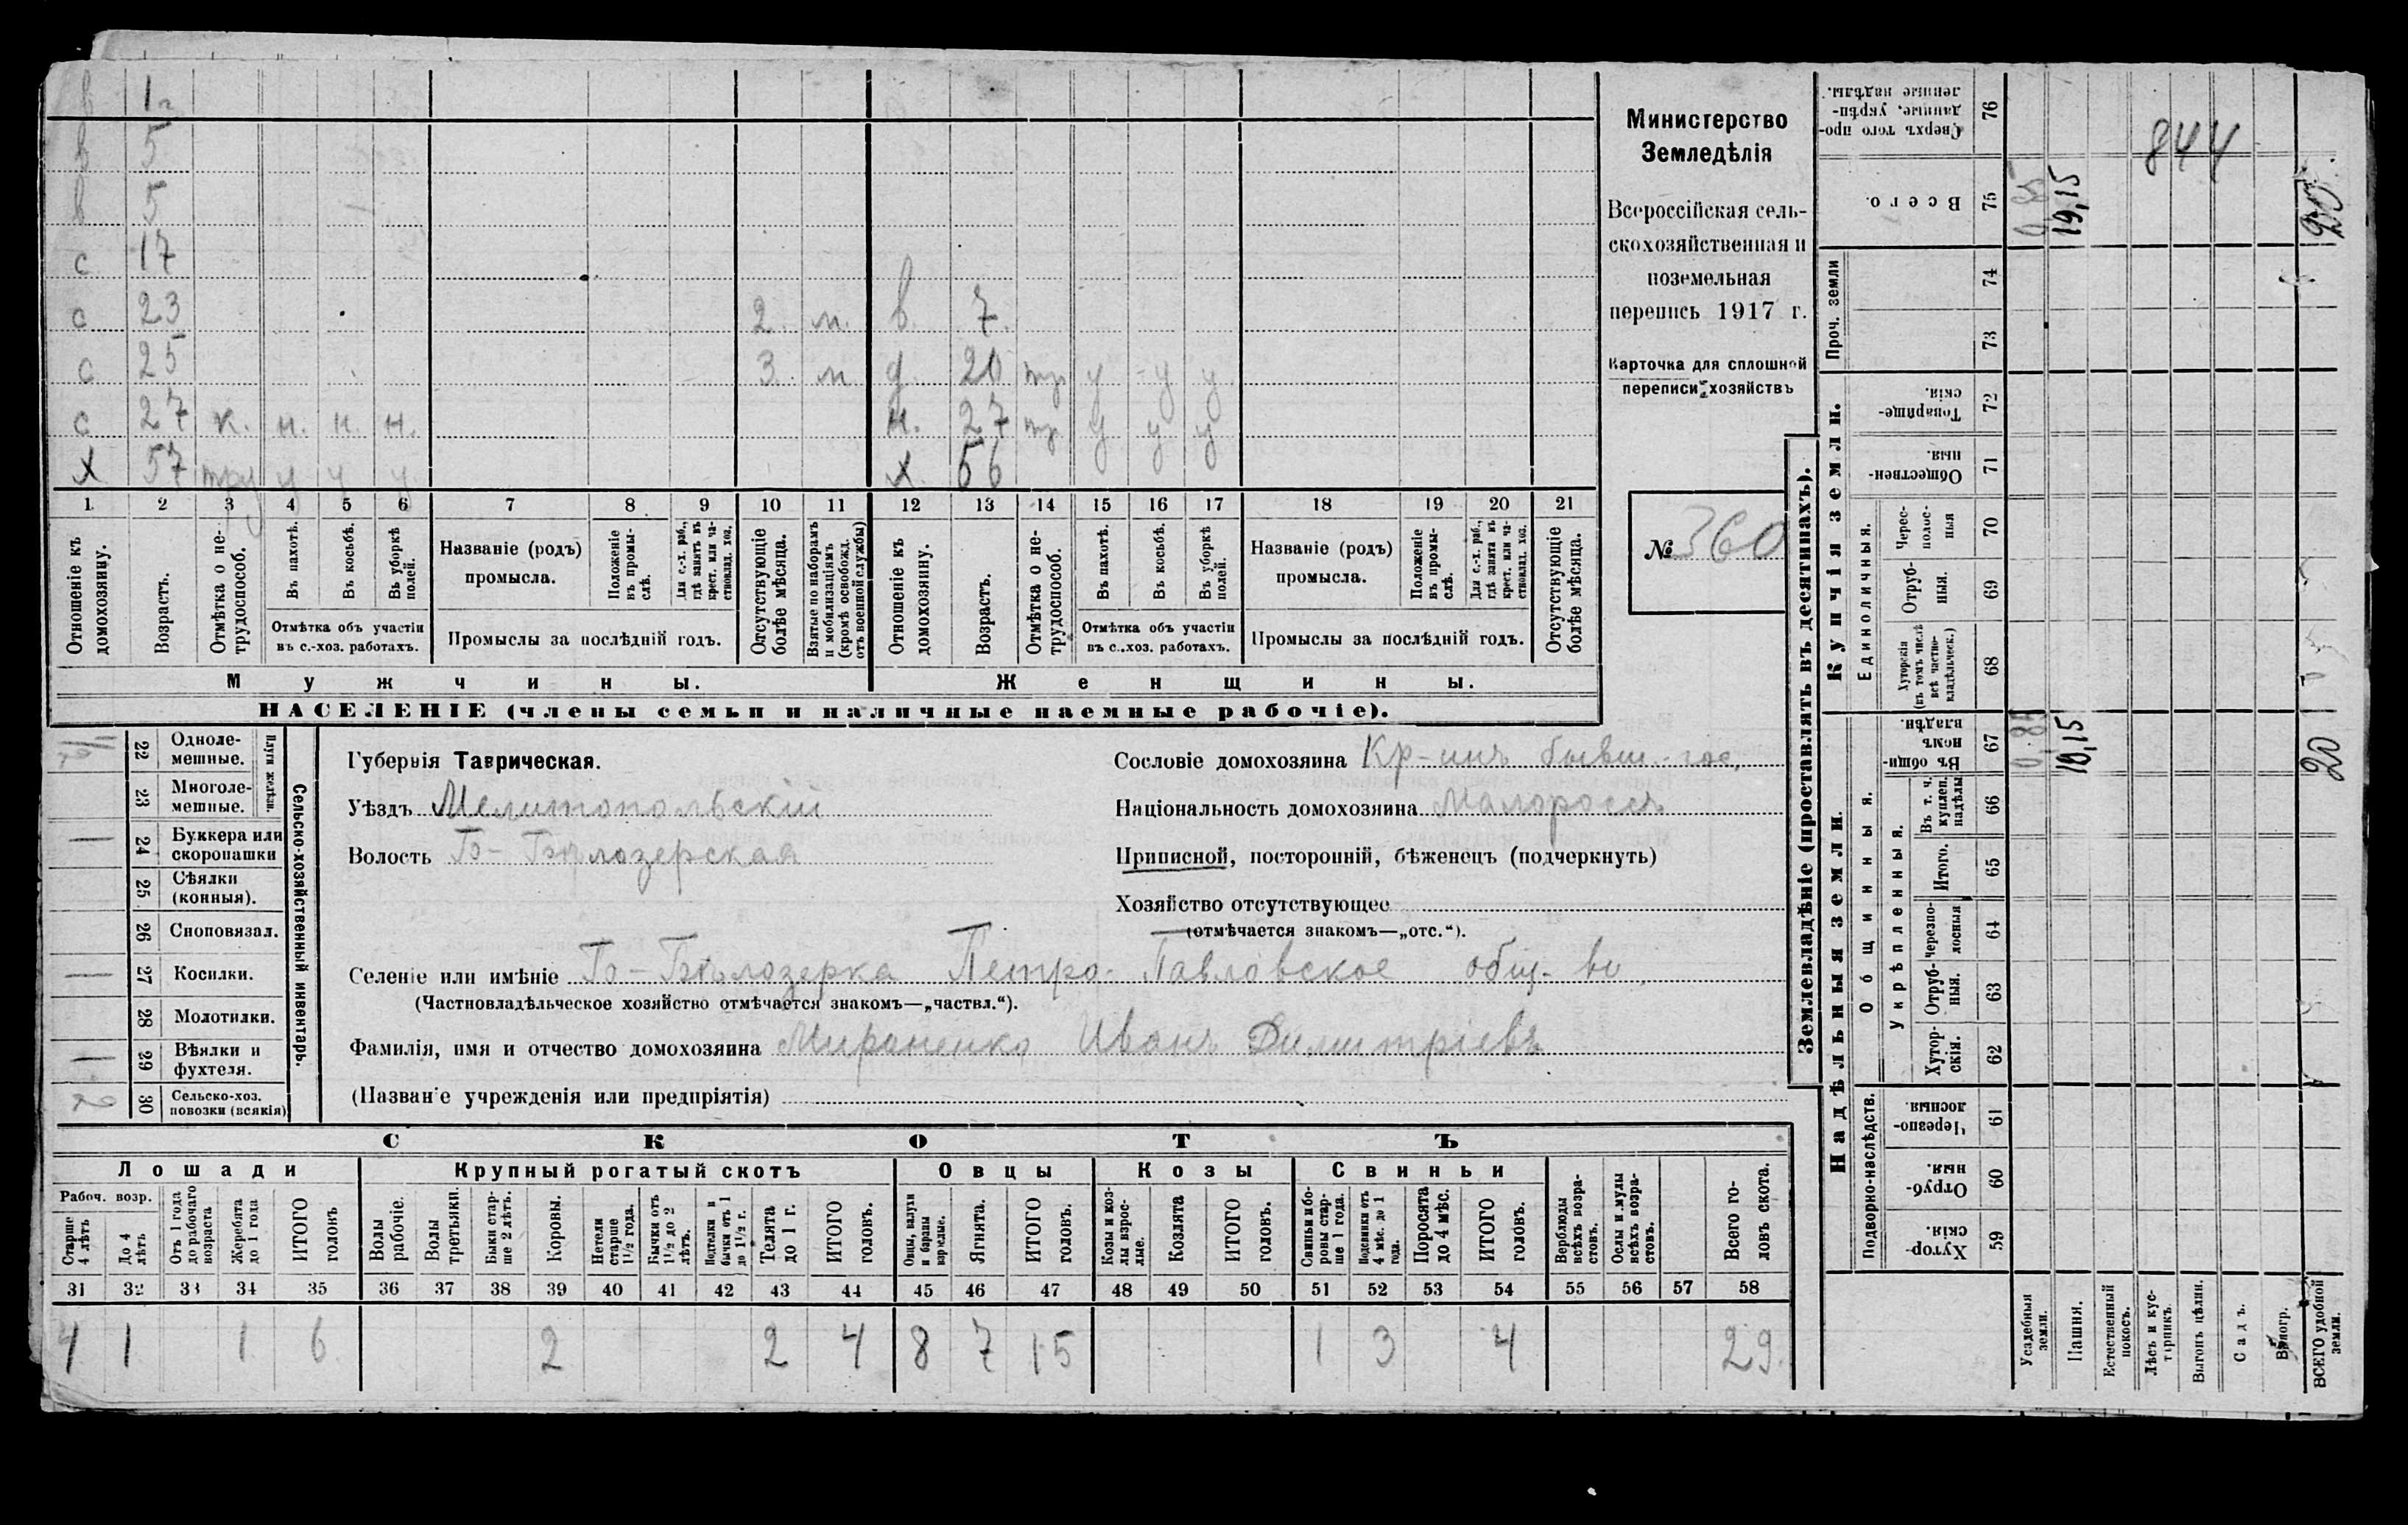 в 1 г
в 5
в 5
с 17
с 23 2 м. в. 7.
с 25 3 м д. 20 тр у у у
с 27 к. н. н. н. н. 27 тр у у у
х 57 тру у у у х. 56
1 2 3 4 5 6 7 8 9 10 11 12 13 14 15 16 17 18 19 20 21
Отношеніе къ домохозяину.
Возрастъ.
Отмѣтка о не-трудоспособ.
Въ пахотѣ.
Въ косьбѣ.
Въ уборкѣ полей.
Отмѣтка объ участіи
въ с.-хоз. работахъ.
Названіе (родъ)
промысла.
Положеніе въ промы-слѣ.
Для с.-х. раб., гдѣ занятъ въ крест. или ча-стновлад. хоз.
Промыслы за послѣдній годъ.
Отсутствующіе болѣе мѣсяца.
Взятые по наборамъ и мобилизаціямъ (кромѣ освобожд. отъ военной службы)
Отношеніе къ домохозяину.
Возрастъ.
Отмѣтка о не-трудоспособ.
Въ пахотѣ.
Въ косьбѣ.
Въ уборкѣ полей.
Отмѣтка объ участіи
въ с.-хоз. работахъ.
Названіе (родъ)
промысла.
Положеніе въ промы-слѣ.
Для с.-х. раб., гдѣ занята въ крест. или ча-стновлад. хоз.
Промыслы за послѣдній годъ.
Отсутствующіе болѣе мѣсяца.
Мужчины.
Женщины.
НАСЕЛЕНІЕ (члены семьи и наличные наемные рабочіе).
Министерство
Земледѣлія
Всероссійская сель-
скохозяйственная и
поземельная
перепись 1917 г.
Карточка для сплошной
переписи хозяйствъ
№ 360
22 Одноле-мешные.
23 Многоле-мешные.
Плуги желѣзн.
24 Буккера или скоропашки
25 Сѣялки (конныя).
26 Сноповязал.
27 Косилки.
28 Молотилки.
29 Вѣялки и фухтеля.
30 Сельско-хоз. повозки (всякія)
Сельско-хозяйственный инвентарь.
Губернія Таврическая.
Уѣздъ Мелитопольскій
Волость Б-Бѣлозерская
Сословіе домохозяина Кр-инъ бывш. гос.
Національность домохозяина Малороссъ
Приписной, посторонній, бѣженецъ (подчеркнуть)
Хозяйство отсутствующее
(отмѣчается знакомъ—„отс.“).
Селеніе или имѣніе Б-Бѣлозерка Петро-Павловское общ-во
(Частновладѣльческое хозяйство отмѣчается знакомъ—„частвл.“).
Фамилія, имя и отчество домохозяина Мираненко Иванъ Димитріевъ
(Названіе учрежденія или предпріятія)
СКОТЪ
Лошади
Крупный рогатый скотъ
Овцы
Козы
Свиньи
Рабоч. возр.
Старше 4 лѣтъ
До 4 лѣтъ
Отъ 1 года до рабочаго возраста
Жеребята до 1 года
ИТОГО головъ
Волы рабочіе.
Волы третьяки.
Быки стар-ше 2 лѣтъ.
Коровы.
Нетели старше 1 1/2 года.
Бычки отъ 1 1/2 до 2 лѣтъ.
Подтелки и бычки отъ 1 до 1 1/2 г.
Телята до 1 г.
ИТОГО головъ.
Овцы, валухи и бараны взрослые.
Ягнята.
ИТОГО головъ.
Козы и коз-лы взрос-лые.
Козлята
ИТОГО головъ.
Свиньи и бо-ровы стар-ше 1 года.
Подсвинки отъ 4 мѣс. до 1 года.
Поросята до 4 мѣс.
ИТОГО головъ.
Верблюды всѣхъ возра-стовъ.
Ослы и мулы всѣхъ возра-стовъ.
Всего го-ловъ скота.
31 32 33 34 35 36 37 38 39 40 41 42 43 44 45 46 47 48 49 50 51 52 53 54 55 56 57 58
4 1 1 6 2 2 4 8 7 15 1 3 4 29.
Землевладѣніе (проставлять въ десятинахъ).
Надѣльныя земли.
Купчія земли.
Проч. земли
Подворно-наслѣдств.
Общинныя.
Укрѣпленныя.
Единоличныя.
Хутор-скія. 59
Отруб-ныя. 60
Черезпо-лосныя. 61
Хутор-скія. 62
Отруб-ныя. 63
Черезпо-лосныя 64
Итого. 65
Въ т. ч. куплен. надѣлы 66
Въ общи-номъ владѣн. 67
Хуторскія (въ томъ числѣ всѣ частно-владѣльческ.) 68
Отруб-ныя. 69
Черес-полос-ныя 70
Обществен-ныя. 71
Товарище-скія. 72
73
74
Всего. 75
Сверхъ того про-данные, укрѣп-ленные надѣлы. 76
Усадебныя земли. 0,85 0,85
Пашня. 19,15 19,15
Естественный покосъ.
Лѣсъ и кус-тарникъ.
Выгонъ цѣлин.
Садъ.
Виногр.
ВСЕГО удобной земли. 20 20
844